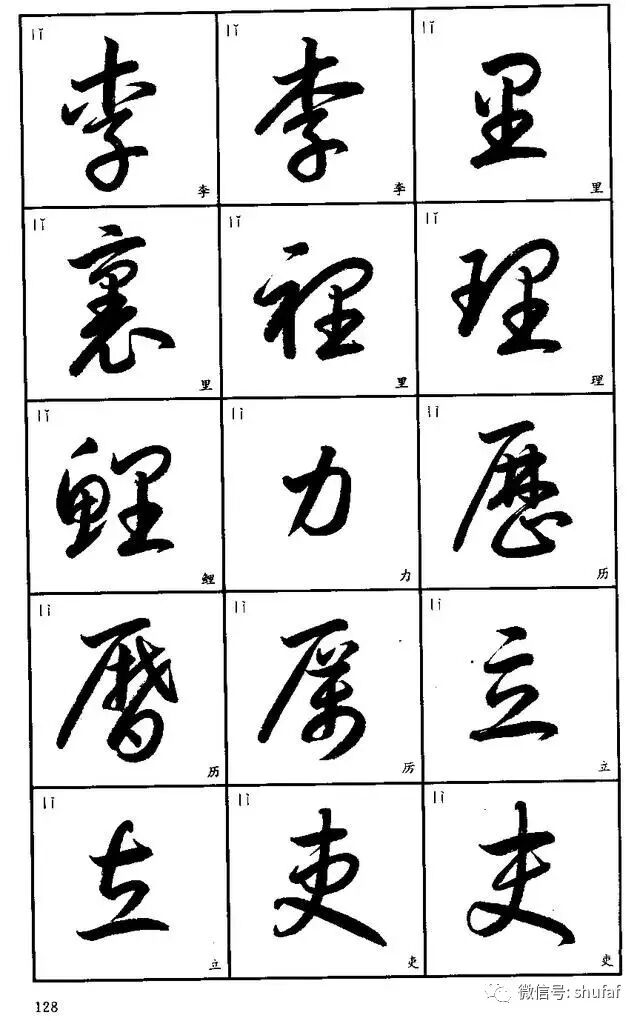 lǐ lǐ lǐ
李 李 里
李 李 里
lǐ lǐ lǐ
裏 裡 理
里 里 理
lǐ lì lì
鯉 力 歷
鲤 力 历
lì lì lì
曆 厲 立
历 厉 立
lì lì lì
立 吏 吏
立 吏 吏
128
微信号: shufaf